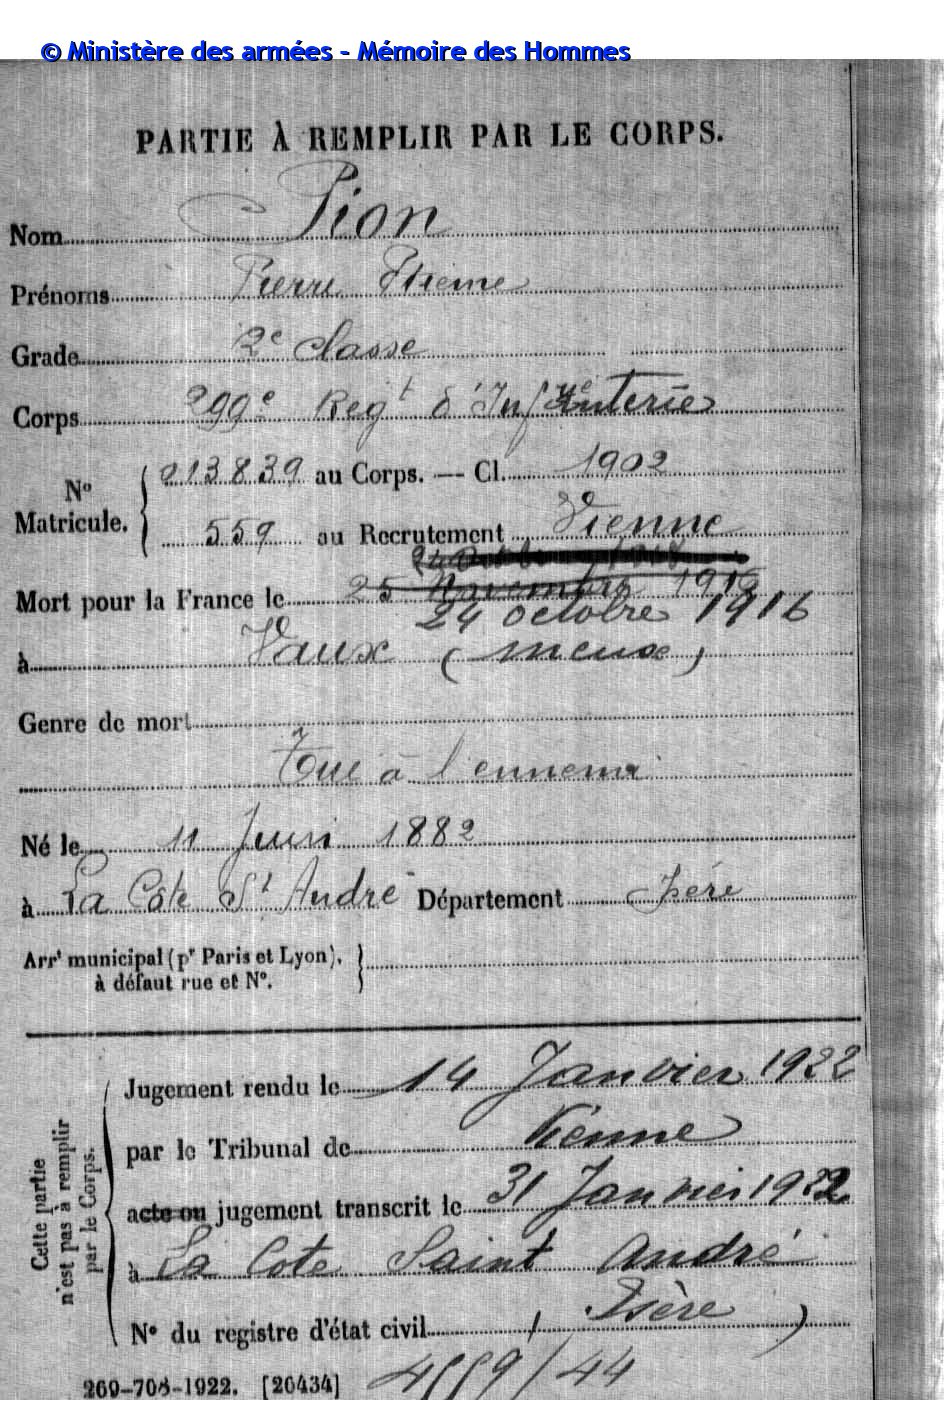 © Ministère des armées - Mémoire des Hommes
PARTIE À REMPLIR PAR LE CORPS.
Nom Pion
Prénoms Pierre Etienne
Grade 2e classe
Corps 299e Regt d'Infanterie
No Matricule. 013839 au Corps. — Cl. 1902
559 au Recrutement Vienne
Mort pour la France le 25 Novembre 1918
24 octobre 1916
à Vaux (Meuse)
Genre de mort
Tué à l'ennemi
Né le 11 Juin 1882
à La Côte St André Département Isère
Arrt municipal (pr Paris et Lyon),
à défaut rue et No.
Cette partie
n'est pas à remplir
par le Corps.
Jugement rendu le 14 Janvier 1922
par le Tribunal de Vienne
acte ou jugement transcrit le 31 Janvier 1922
à La Cote Saint André
No du registre d'état civil (Isère)
269-708-1922. [26434]